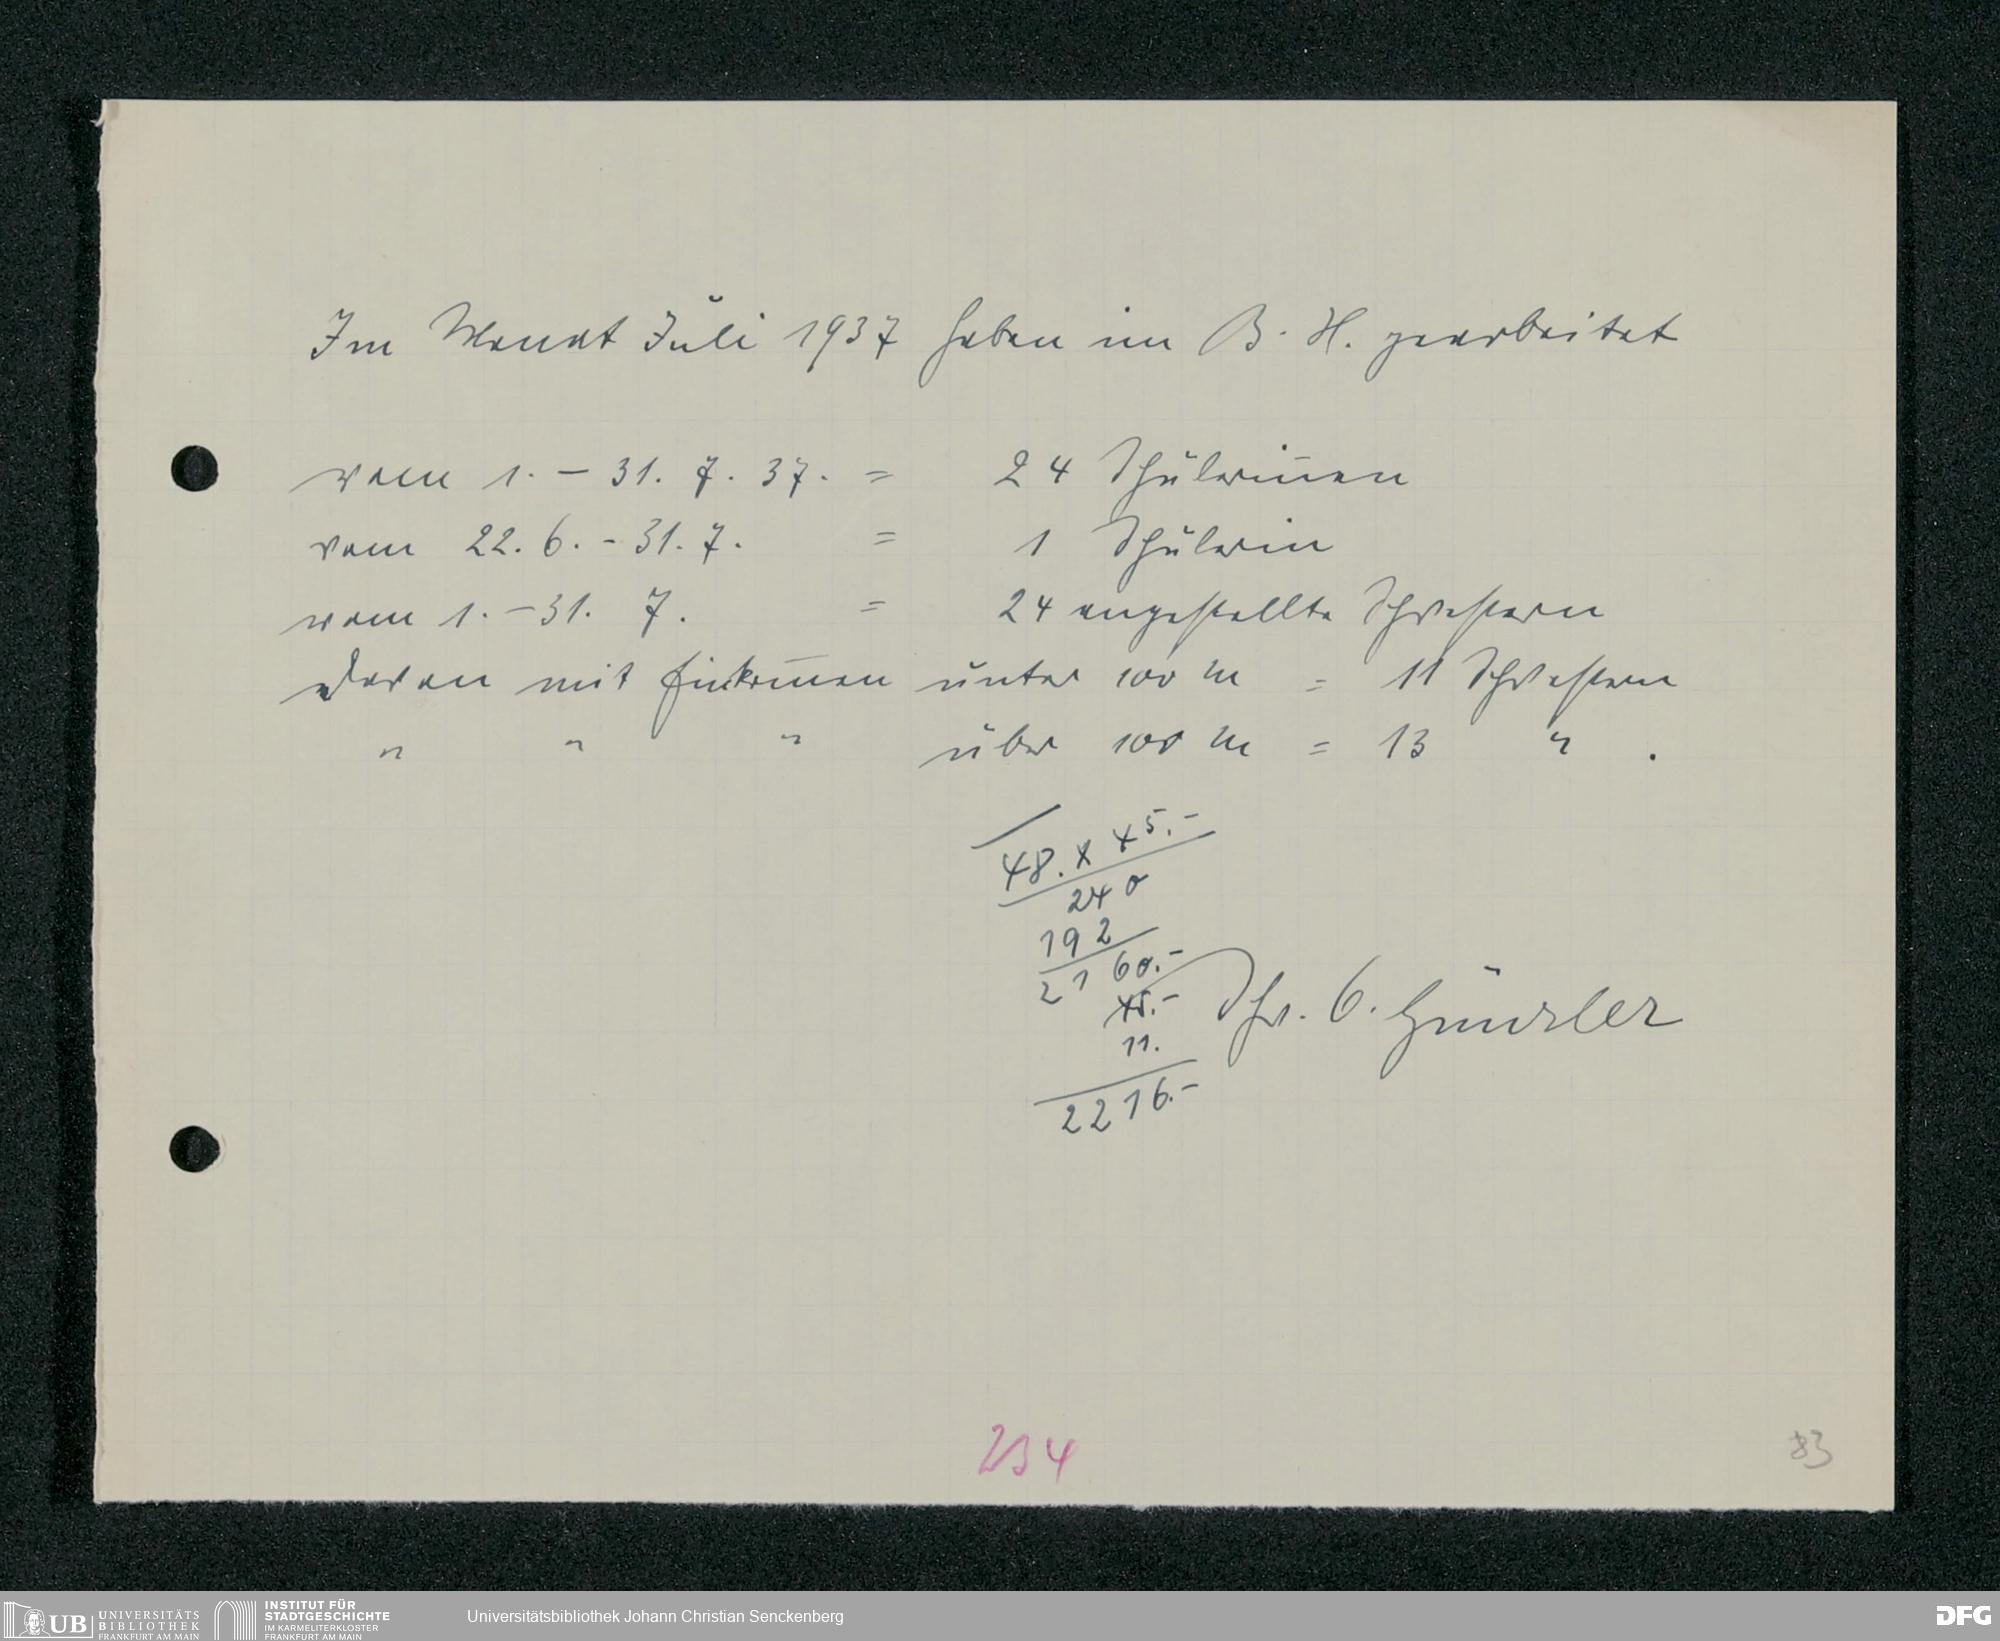 Im Monat Juli 1937 haben im B. H. gearbeitet
vom 1. – 31. 7. 37. = 24 Schülerin̄en
vom 22. 6. - 31. 7. = 1 Schülerin
vom 1. – 31. 7. = 24 angestellte Schwestern
Davon mit Einkom̄en unter 100 M = 11 Schwestern
" " " über 100 M = 13 " .
48. x 45.-
240
192
2160.-
45.-
11.
2216.-
Schw. E.
234
83
UB UNIVERSITÄTS
BIBLIOTHEK
FRANKFURT AM MAIN
INSTITUT FÜR
STADTGESCHICHTE
IM KARMELITERKLOSTER
FRANKFURT AM MAIN
Universitätsbibliothek Johann Christian Senckenberg
DFG